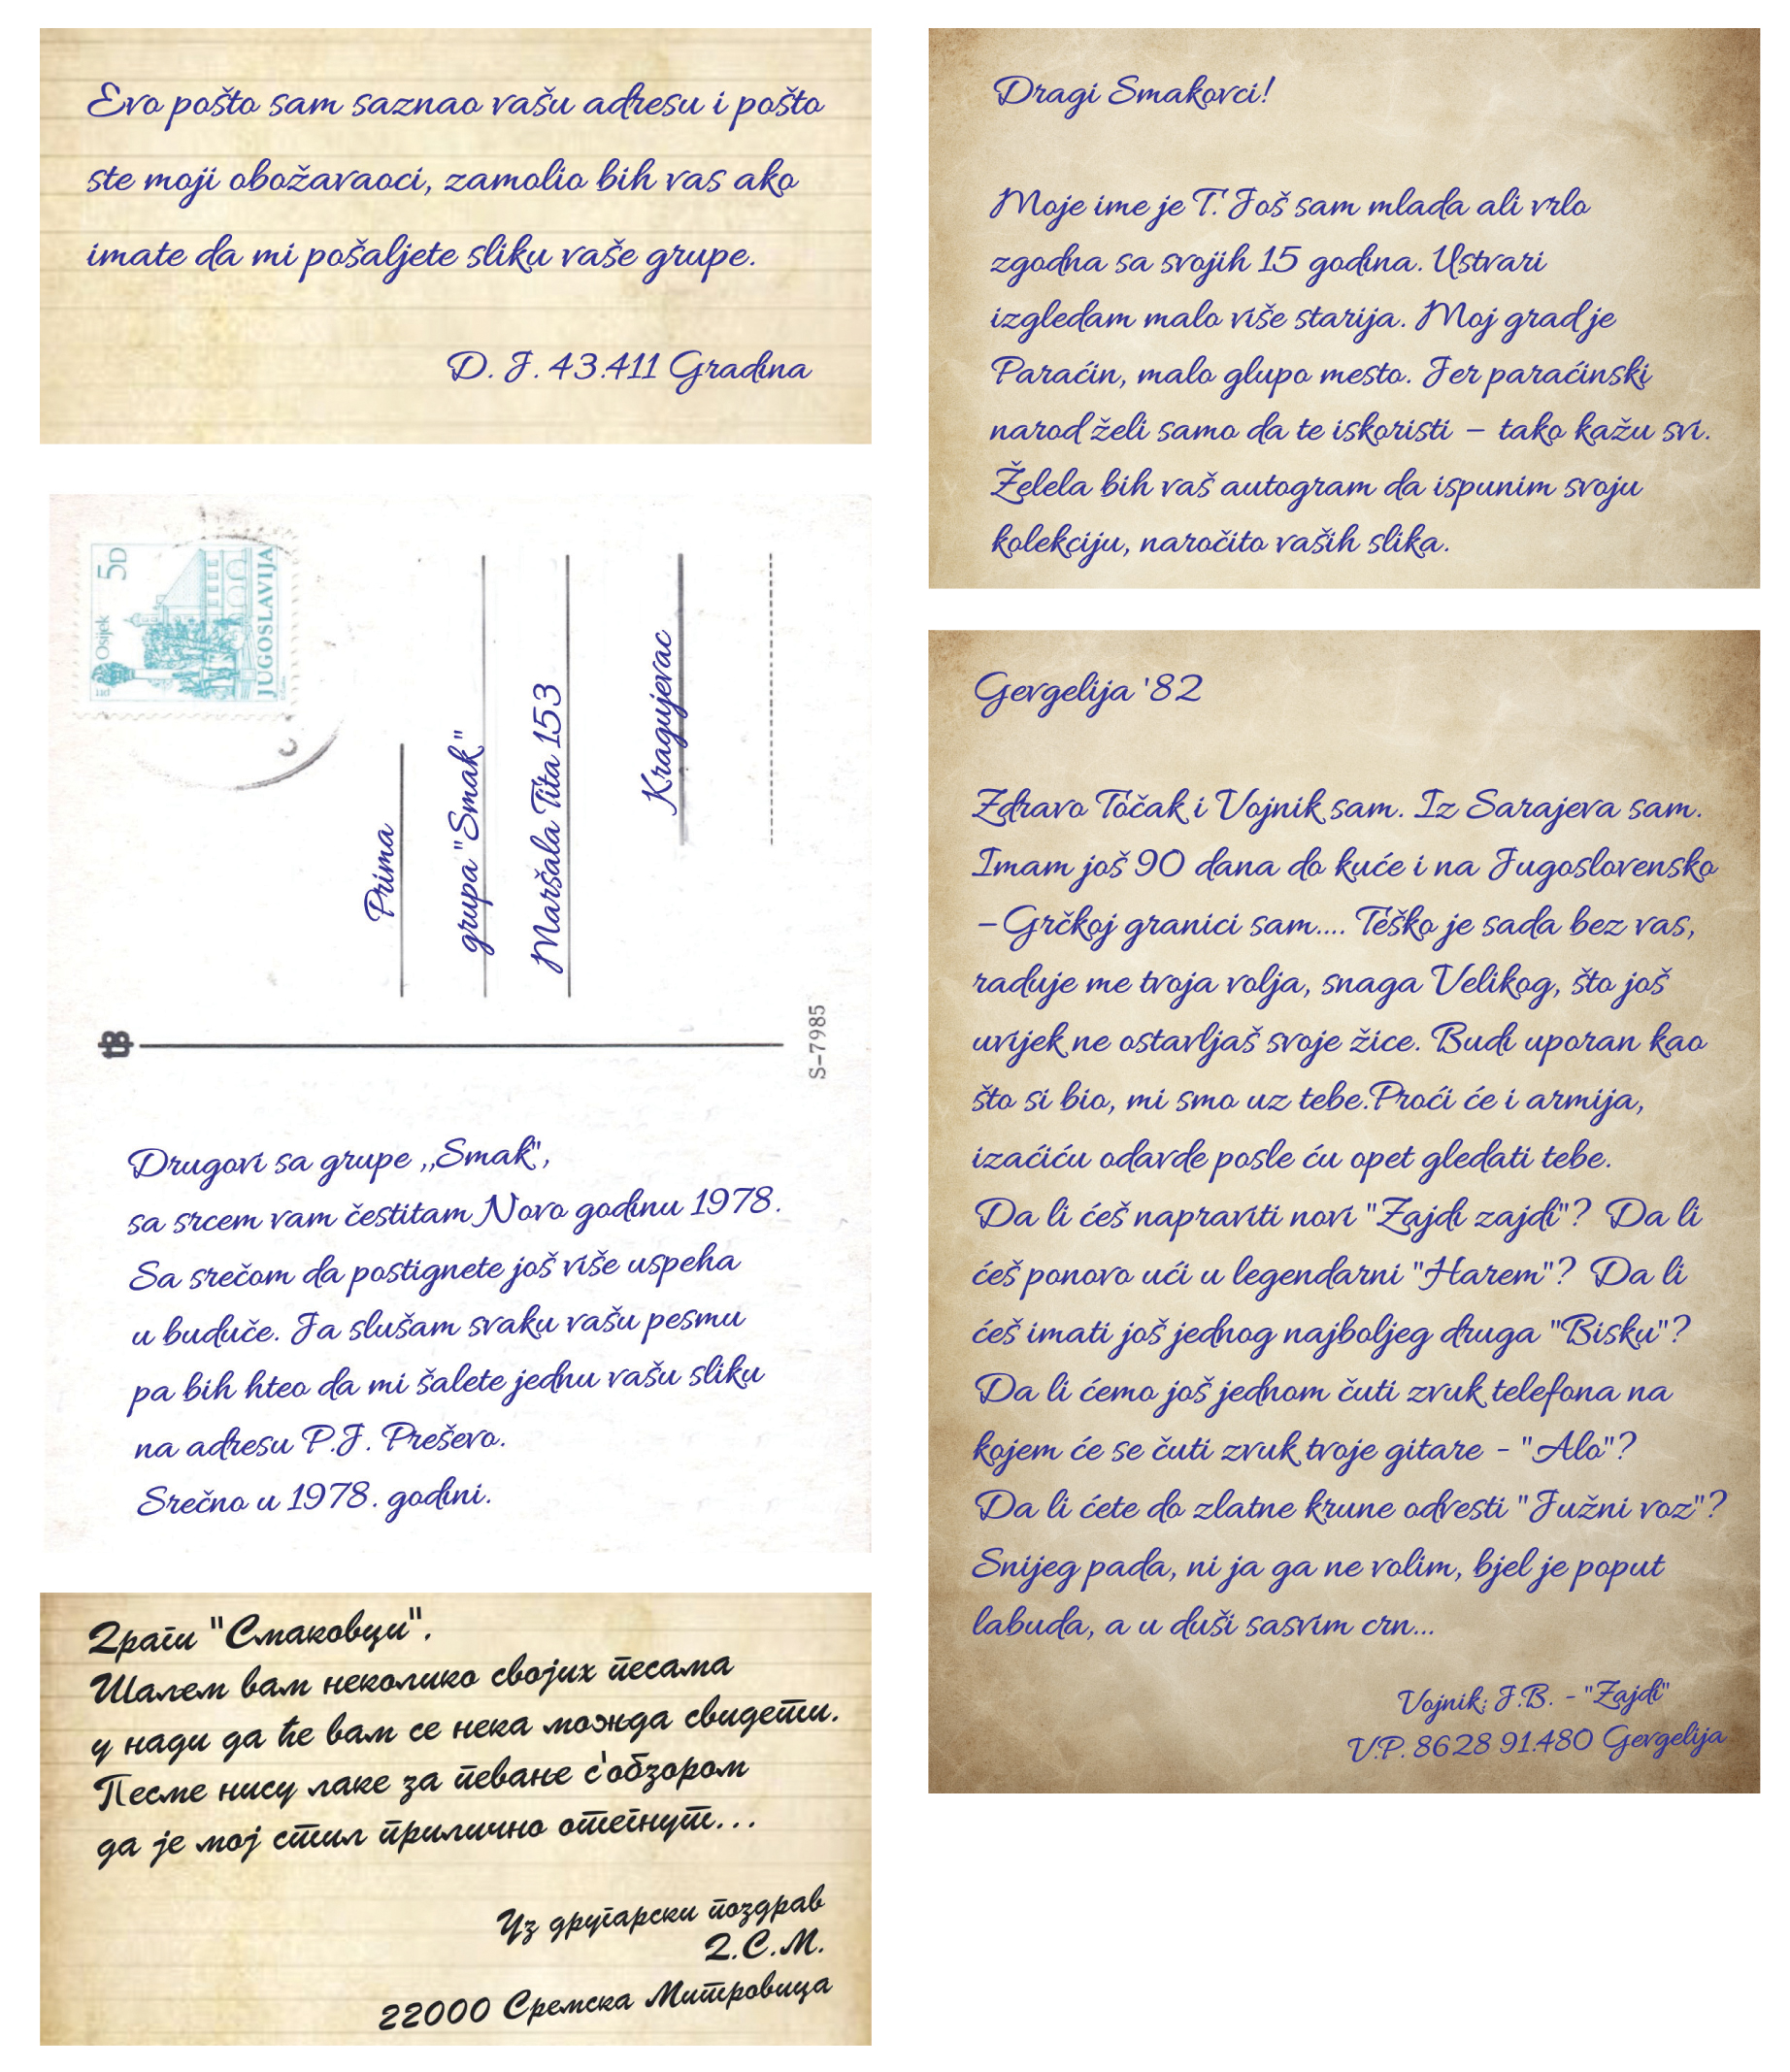 Evo pošto sam saznao vašu adresu i pošto
ste moji obožavaoci, zamolio bih vas ako
imate da mi pošaljete sliku vaše grupe.
D. J. 43.411 Gradina
5D
Osijek
JUGOSLAVIJA
Prima
grupa "Smak"
Maršala Tita 153
Kragujevac
S-7985
Drugovi sa grupe ,,Smak",
sa srcem vam čestitam Novo godinu 1978.
Sa srečom da postignete još više uspeha
u buduče. Ja slušam svaku vašu pesmu
pa bih hteo da mi šalete jednu vašu sliku
na adresu P.J. Preševo.
Srečno u 1978. godini.
Драги "Смаковци".
Шалем вам неколико својих песама
у нади да ће вам се нека можда свидети.
Песме нису лаке за певање с'обзором
да је мој стил прилично отегнут...
Уз другарски поздрав
Д.С.М.
22000 Сремска Митровица
Dragi Smakovci!
Moje ime je T. Još sam mlada ali vrlo
zgodna sa svojih 15 godina. Ustvari
izgledam malo više starija. Moj grad je
Paraćin, malo glupo mesto. Jer paraćinski
narod želi samo da te iskoristi – tako kažu svi.
Želela bih vaš autogram da ispunim svoju
kolekciju, naročito vaših slika.
Gevgelija '82
Zdravo Točak i Vojnik sam. Iz Sarajeva sam.
Imam još 90 dana do kuće i na Jugoslovensko
–Grčkoj granici sam.... Teško je sada bez vas,
raduje me tvoja volja, snaga Velikog, što još
uvijek ne ostavljaš svoje žice. Budi uporan kao
što si bio, mi smo uz tebe.Proći će i armija,
izaćiću odavde posle ću opet gledati tebe.
Da li ćeš napraviti novi "Zajdi zajdi"? Da li
ćeš ponovo ući u legendarni "Harem"? Da li
ćeš imati još jednog najboljeg druga "Bisku"?
Da li ćemo još jednom čuti zvuk telefona na
kojem će se čuti zvuk tvoje gitare - "Alo"?
Da li ćete do zlatne krune odvesti "Južni voz"?
Snijeg pada, ni ja ga ne volim, bjel je poput
labuda, a u duši sasvim crn...
Vojnik: J.B. - "Zajdi"
V.P. 8628 91.480 Gevgelija